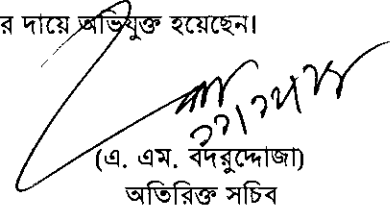 র দায়ে অভিযুক্ত হয়েছেন।
(এ. এম. বদরুদ্দোজা)
অতিরিক্ত সচিব